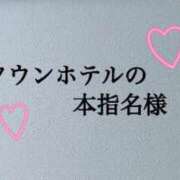 ウンホテルの
本指名様